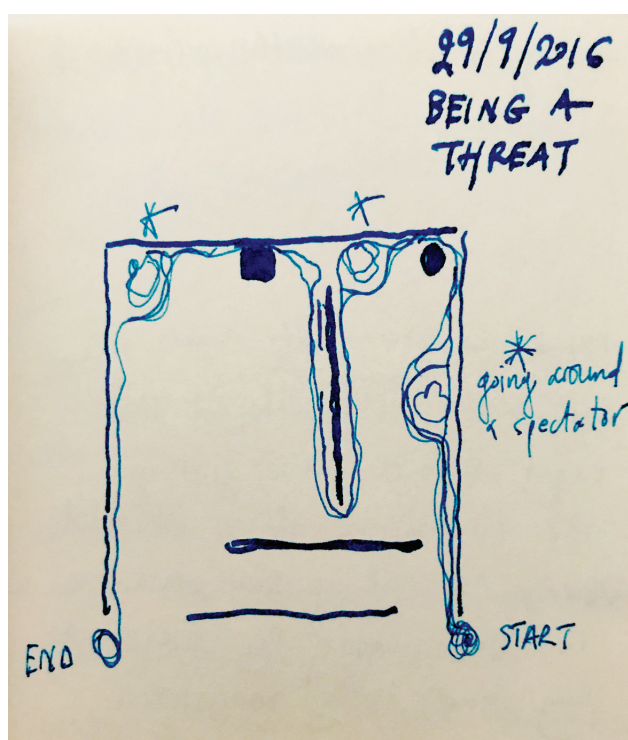 29/9/2016
BEING A
THREAT
*
*
*
going around
a spectator
START
END